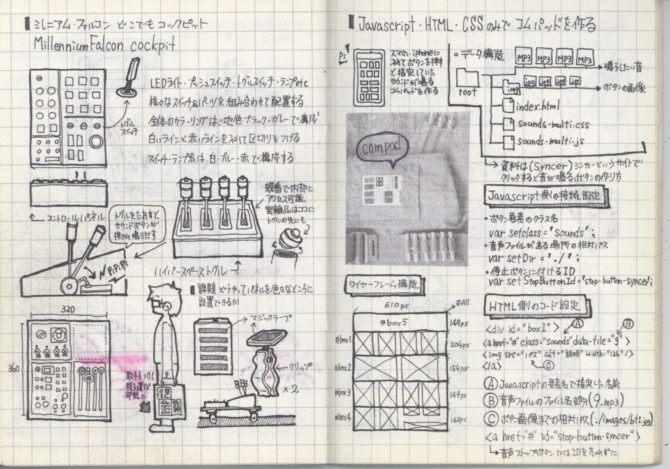 ミレニアム・ファルコン どこでもコックピット
MillenniumFalcon cockpit
LEDライト・プッシュスイッチ・トグルスイッチ・ランプetc
様々なスイッチ&パーツを組み合わせて配置する
全体のカラーリングは、地色ブラック・グレーで構成
白いラインと赤いラインを入れて区切りをつける
スイッチ・ランプ系は、白・ブルー・赤で構成
トグル
スイッチ
コントロールパネル
トグルをたおすと
サウンドボタンが
押され鳴り出す
蝶番で内部に
アクセス可能
ハイパースペーストグル
320
360
課題 どうやってパネルを色々なところに
設置できるか
マジックテープ
クリップ
×2
Javascript・HTML・CSSのみで コムパッドを作る
スマホ・iphoneに
サウンドが鳴る
コムパッドを作る
データ構造
root
MP3 MP3 MP3 MP3
鳴らしたい音
img
ボタンの画像
index.html
sounds-multi.css
sounds-multi.js
資料は(Syncer)シンカーというサイトで
クリックすると音が鳴るボタンの作り方
compad
Javascript側の接続設定
・ボタン要素のクラス名
var setClass = 'sounds';
・音声ファイルがある場所の相対パス
var setDir = './';
・停止ボタンに付けるID
var setStopButtonId = 'stop-button-syncer';
ワイヤーフレーム構造
610px
#box5
#box1
#box2
#box3
#box4
HTML側のコード設定
<div id="box1">
Ⓐ Ⓑ
<a href="#" class="sounds" data-file="9">
</a>
Ⓒ
Ⓐ Javascriptの要素名で指定した名前
Ⓑ 音声ファイルのファイル名部分(9.mp3)
Ⓒ ボタン画像までの相対パス
<a href="#" id="stop-button-syncer">